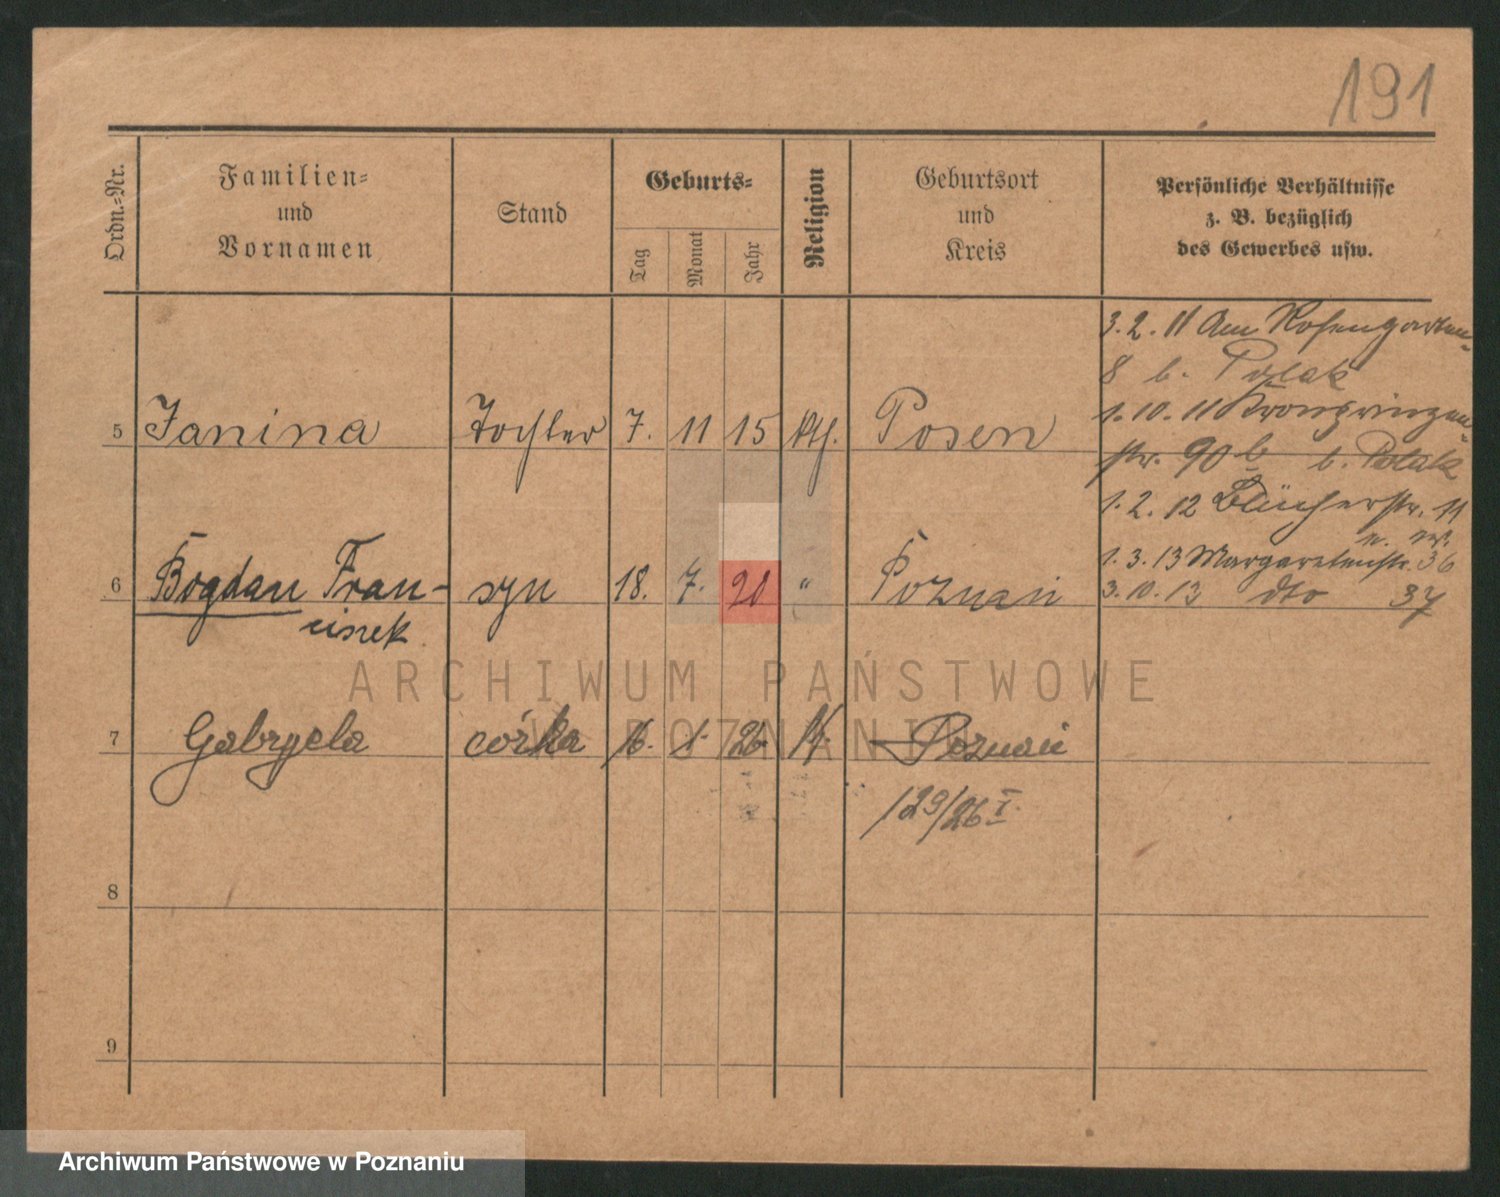 191
Ordn.-Nr.
Familien-
und
Vornamen
Stand
Geburts-
Tag
Monat
Jahr
Religion
Geburtsort
und
Kreis
Persönliche Verhältnisse
z. B. bezüglich
des Gewerbes usw.
3.2.11 Am Rosengarten-
8 b. Polak
1.10.11 Kronprinzen-
str. 90 b b. Polak
1.2.12 Blücherstr. 11
1.3.13 Margaretenstr. 36
3.10.13 dto 37
5 Janina Tochter 7. 11 15 kth. Posen
6 Bogdan Fran- syn 18. 7. 20 " Poznań
ciszek
ARCHIWUM PAŃSTWOWE
W POZNANIU
7 Gabryela córka 16. 1. 26 k. Poznań
129/26 I.
8
9
Archiwum Państwowe w Poznaniu